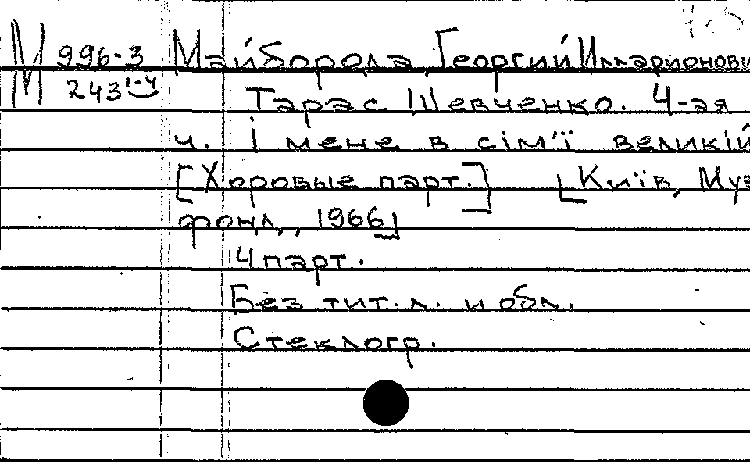 М 996-3 Майборода, Георгий Илларионови
243 1-4 Тарас Шевченко. 4-ая
ч. І мене в сім'ї великій
[Хоровые парт.] [Київ, Муз
фонд, 1966]
4 парт.
Без тит. л. и обл.
Стеклогр.